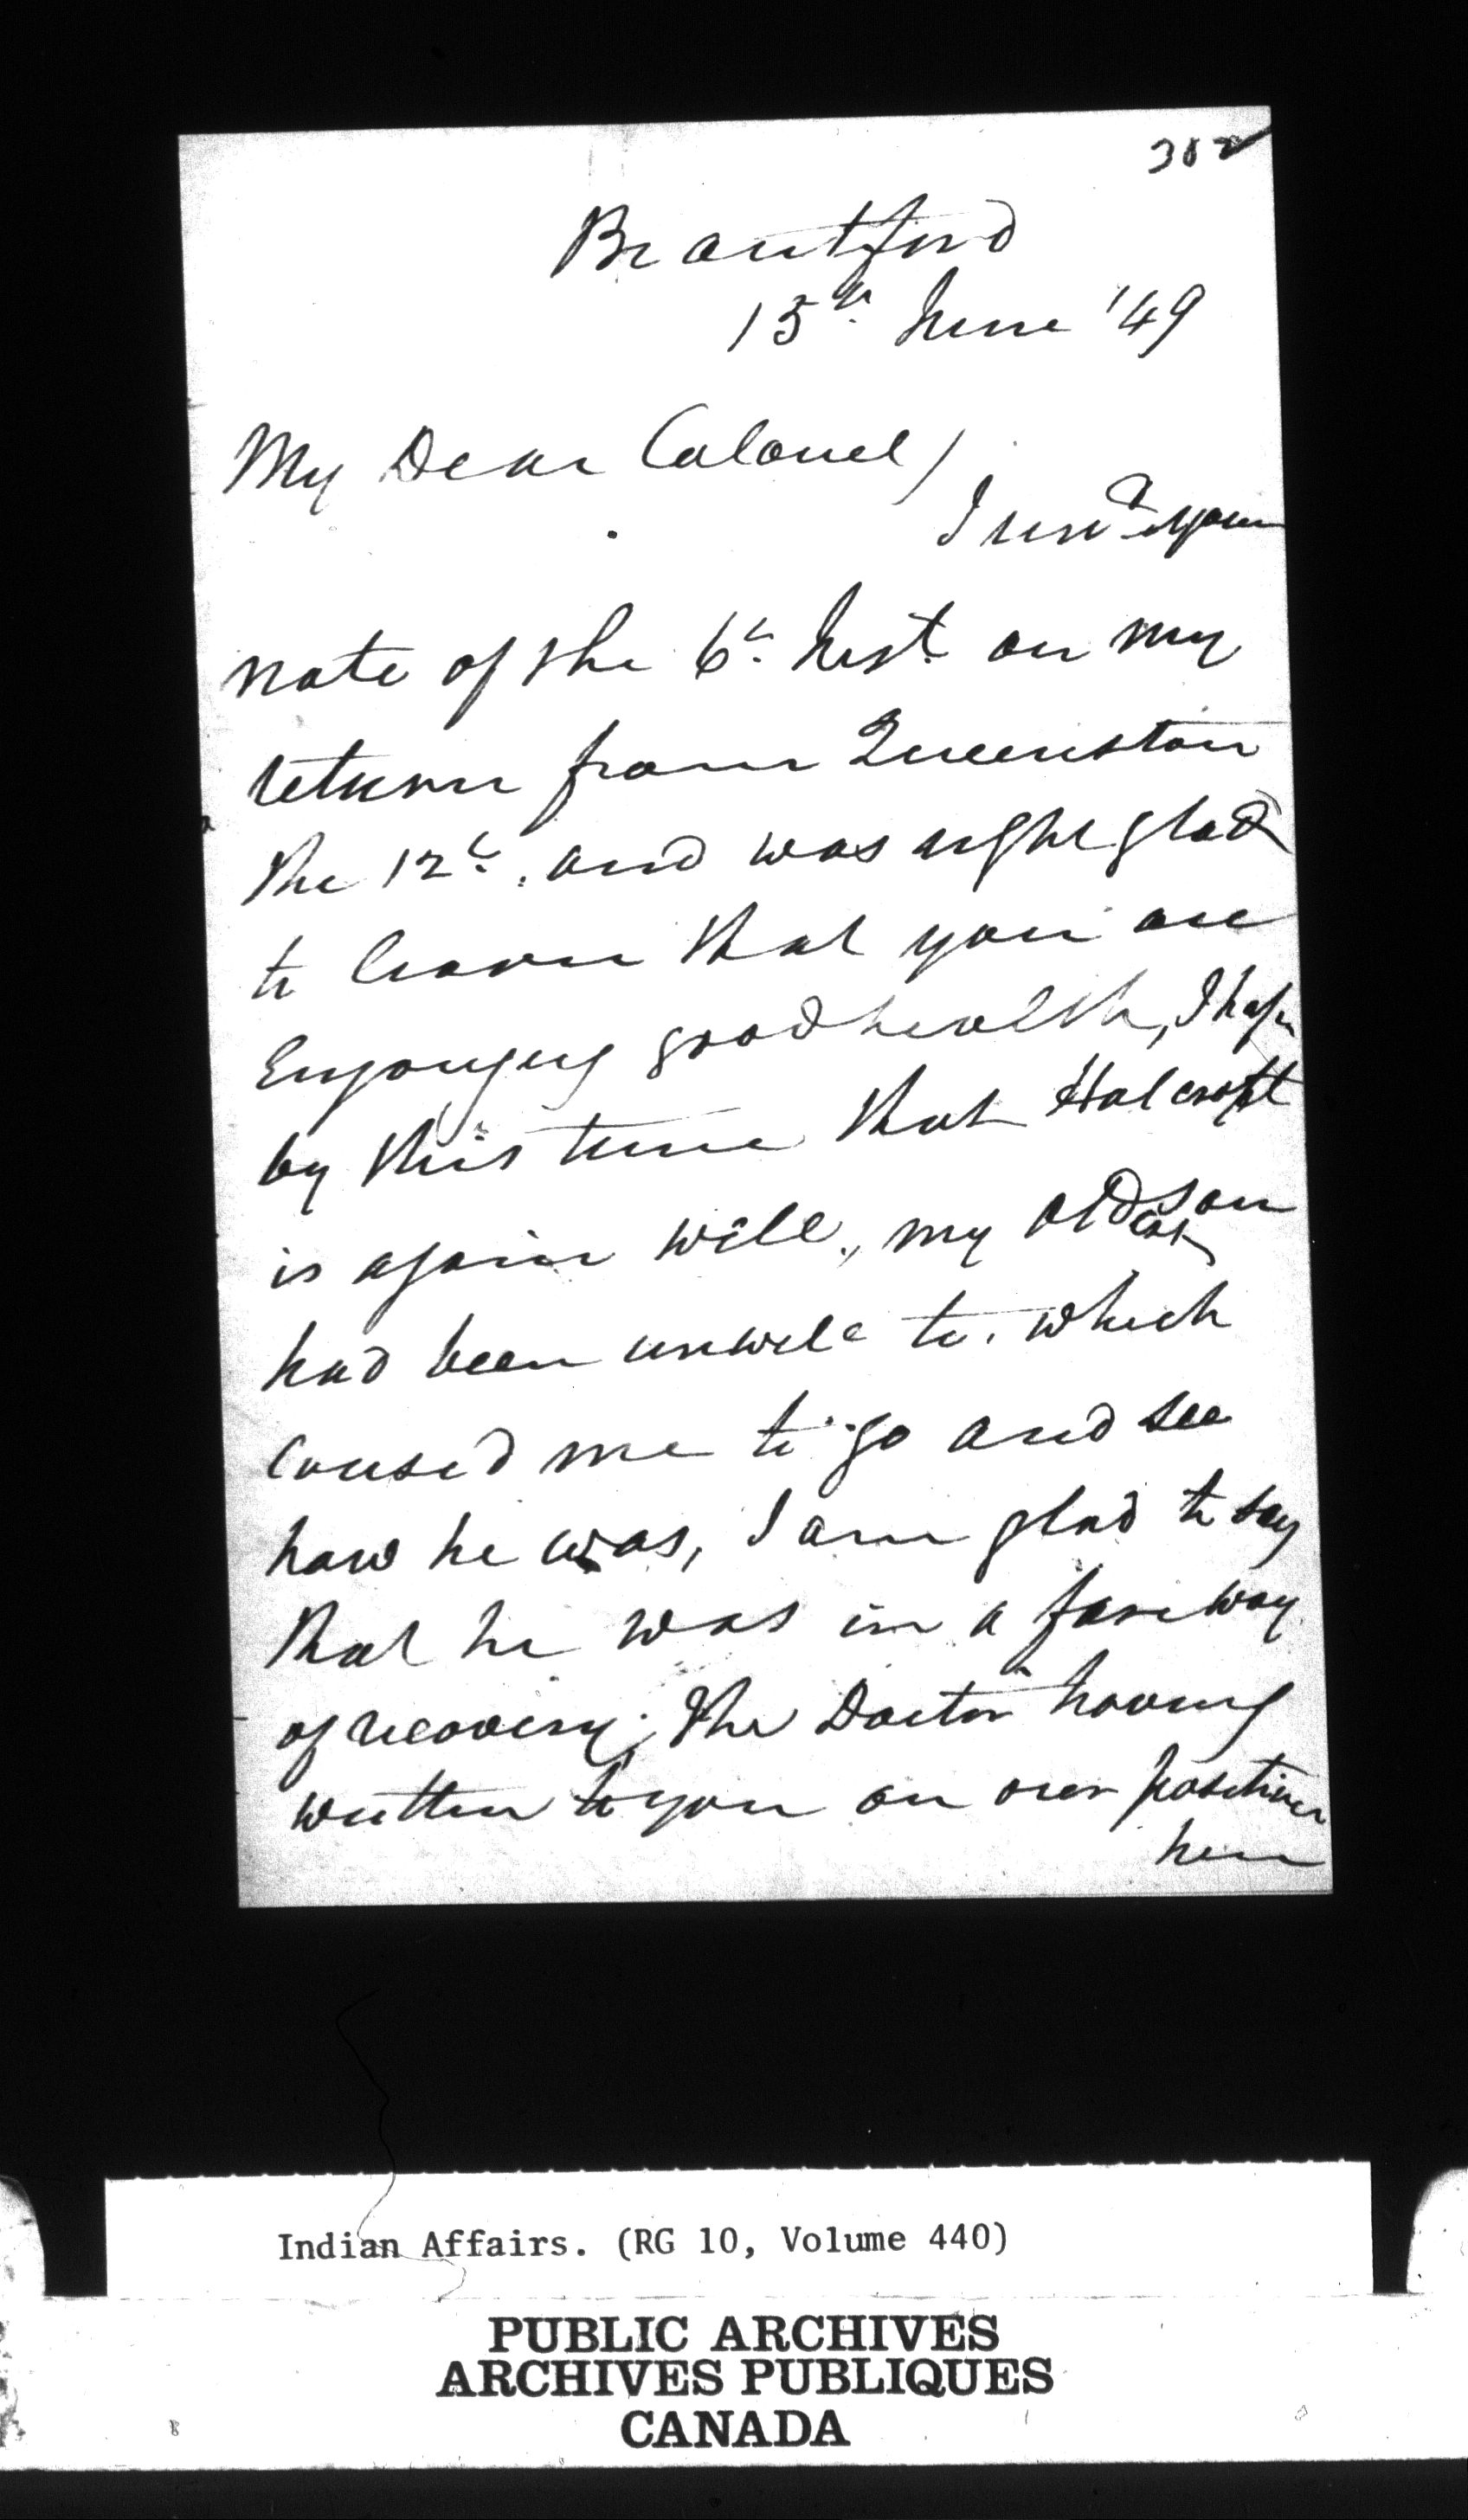 382
Brantford
15th June '49
My Dear Colonel/
I recd your
note of the 6th Inst. on my
return from Queenston
the 12th. and was right glad
to learn that you are
Enjoying good health, I hope
by this time that Halcroft
is again well, my old son
had been unwell to. which
caused me to go and see
how he was, I am glad to say
that he was in a fare way
of recovery; the Doctor having
written to you on our position
here
Indian Affairs. (RG 10, Volume 440)
PUBLIC ARCHIVES
ARCHIVES PUBLIQUES
CANADA